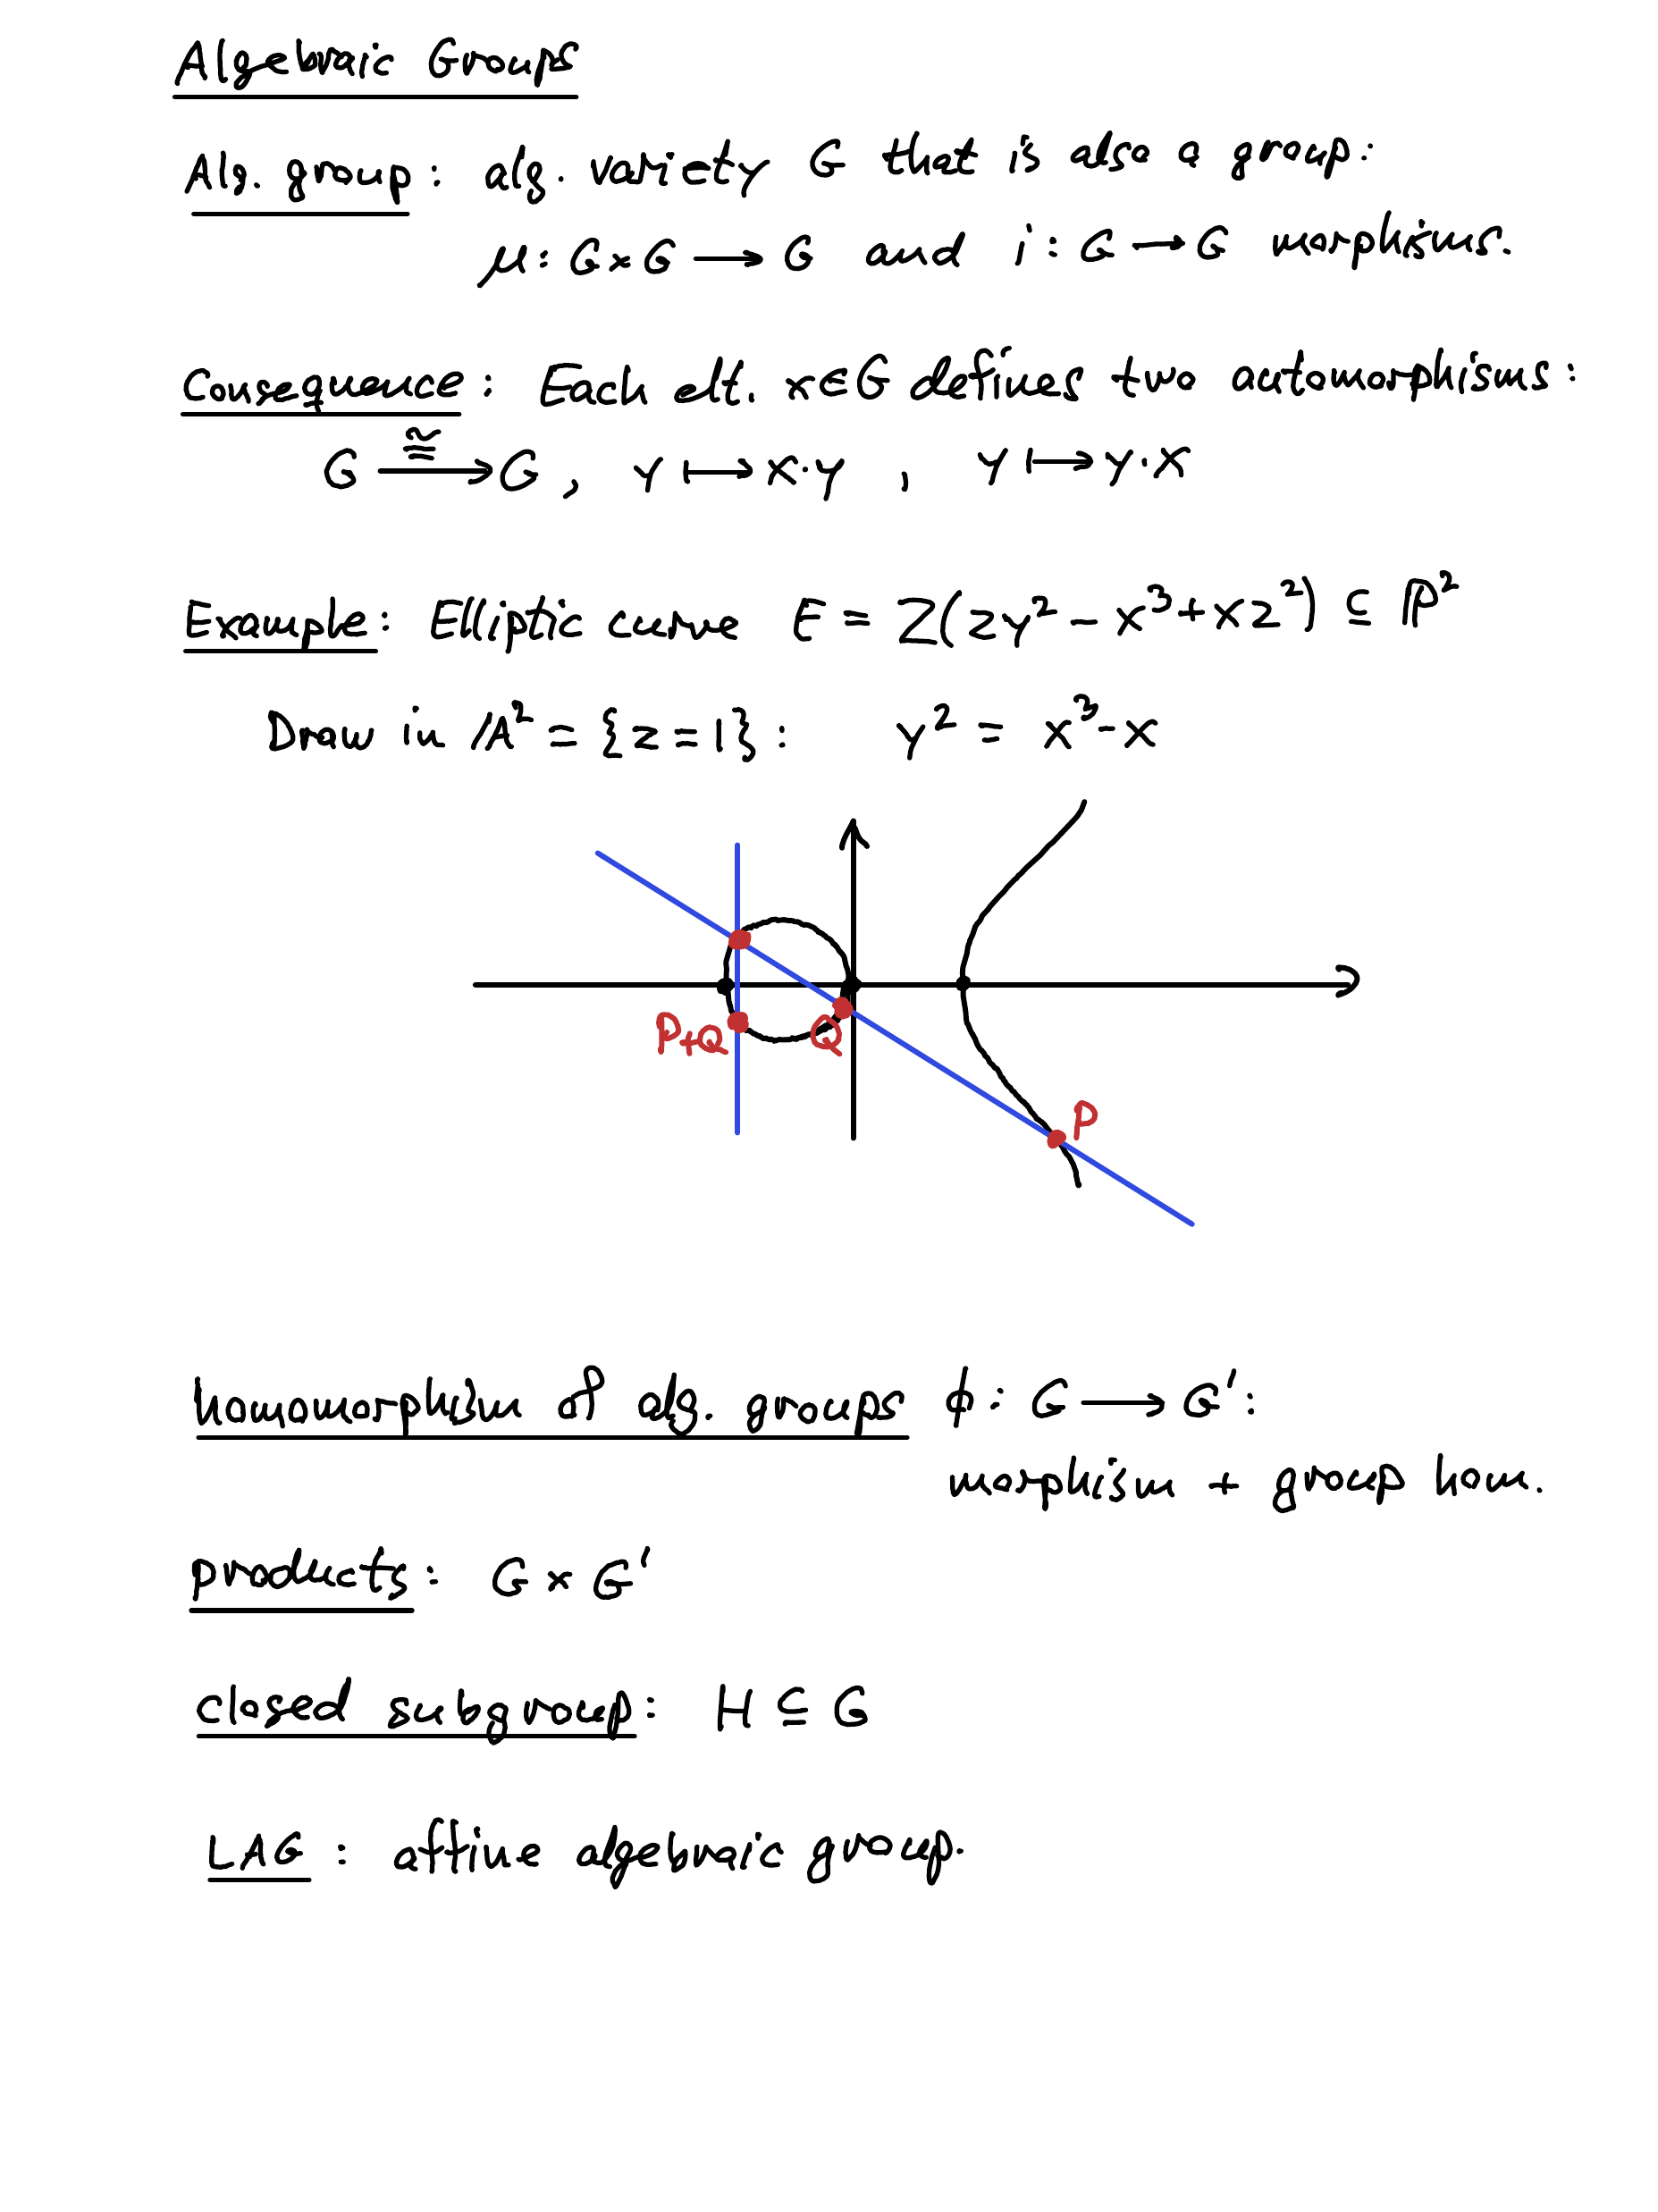 Algebraic Groups
Alg. group: alg. variety G that is also a group:
μ: G×G ⟶ G and i: G → G morphisms.
Consequence: Each elt. x∈G defines two automorphisms:
G ≅⟶ G, y ⟼ x·y , y ⟼ y·x
Example: Elliptic curve E = Z(zy² − x³ + xz²) ⊆ ℙ²
Draw in 𝔸² = {z=1}: y² = x³-x
P+Q
Q
P
homomorphism of alg. groups ϕ: G ⟶ G':
morphism + group hom.
products: G × G'
closed subgroup: H ⊆ G
LAG : affine algebraic group.